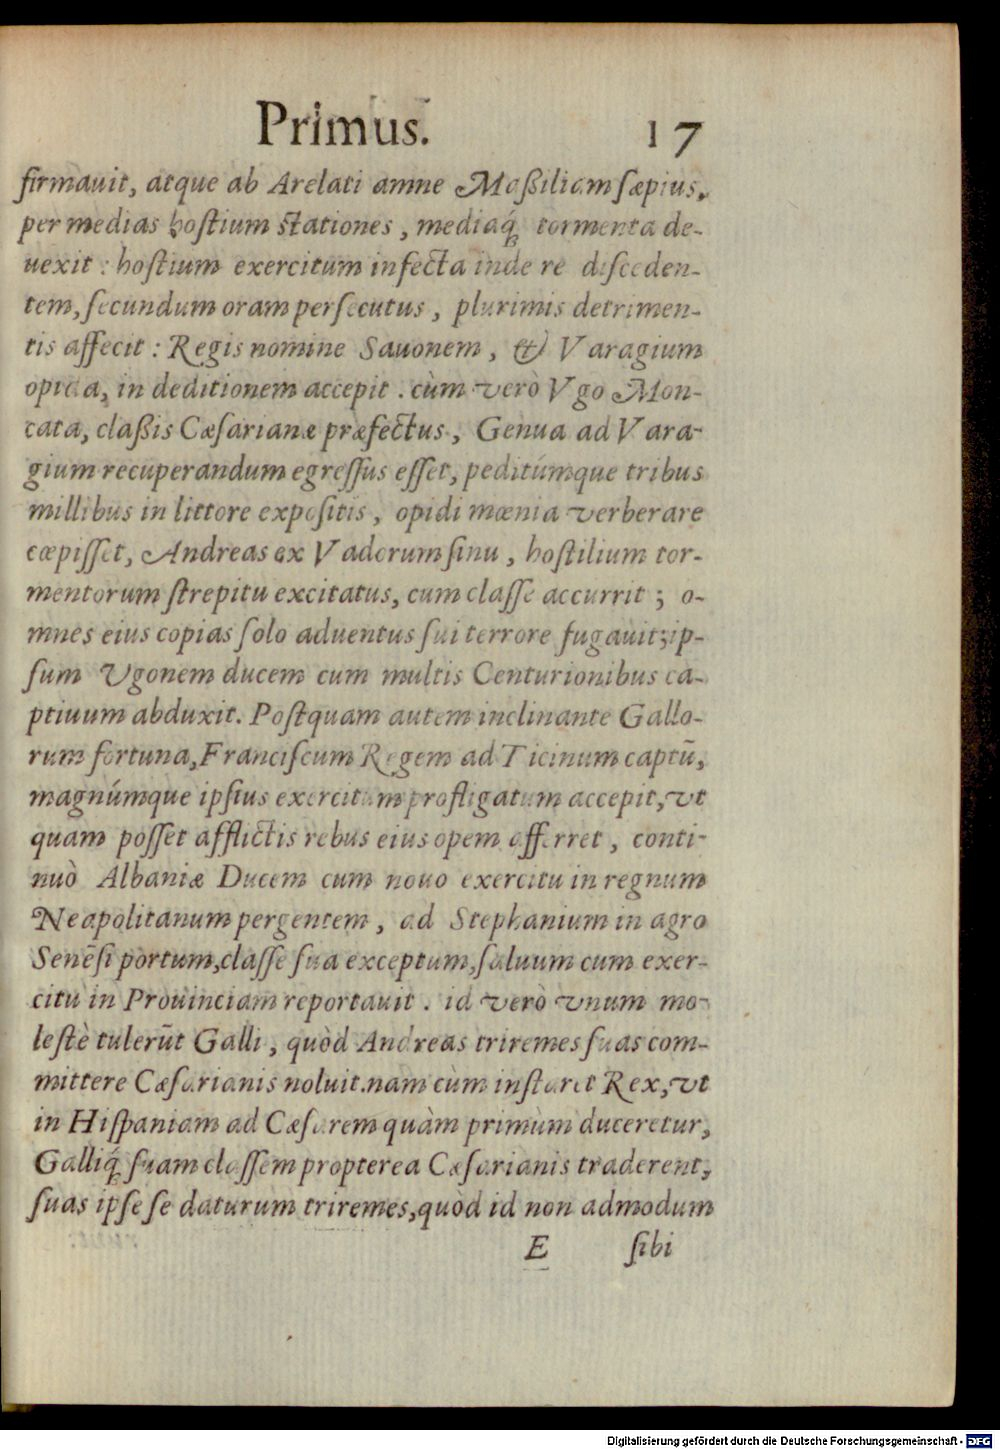 Primus. 17
firmauit, atque ab Arelati amne Maßiliam sæpius,
per medias hostium stationes, mediaq́; tormenta de-
uexit: hostium exercitum infecta inde re disceden-
tem, secundum oram persecutus, plurimis detrimen-
tis affecit: Regis nomine Sauonem, & Varagium
opida, in deditionem accepit. cùm verò Vgo Mon-
cata, claßis Cæsarianæ præfectus, Genua ad Vara-
gium recuperandum egressus esset, peditúmque tribus
millibus in littore expositis, opidi mœnia verberare
cœpisset, Andreas ex Vadorum sinu, hostilium tor-
mentorum strepitu excitatus, cum classe accurrit; o-
mnes eius copias solo aduentus sui terrore fugauit; ip-
sum Vgonem ducem cum multis Centurionibus ca-
ptiuum abduxit. Postquam autem inclinante Gallo-
rum fortuna, Franciscum Regem ad Ticinum captū,
magnúmque ipsius exercitum profligatum accepit, vt
quam posset afflictis rebus eius opem afferret, conti-
nuò Albaniæ Ducem cum nouo exercitu in regnum
Neapolitanum pergentem, ad Stephanium in agro
Senēsi portum, classe sua exceptum, saluum cum exer-
citu in Prouinciam reportauit. id verò vnum mo-
lestè tulerūt Galli, quòd Andreas triremes suas com-
mittere Cæsarianis noluit. nam cùm instaret Rex, vt
in Hispaniam ad Cæsarem quàm primùm duceretur,
Galliq́; suam classem propterea Cæsarianis traderent,
suas ipse se daturum triremes, quòd id non admodum
E sibi
Digitalisierung gefördert durch die Deutsche Forschungsgemeinschaft - DFG